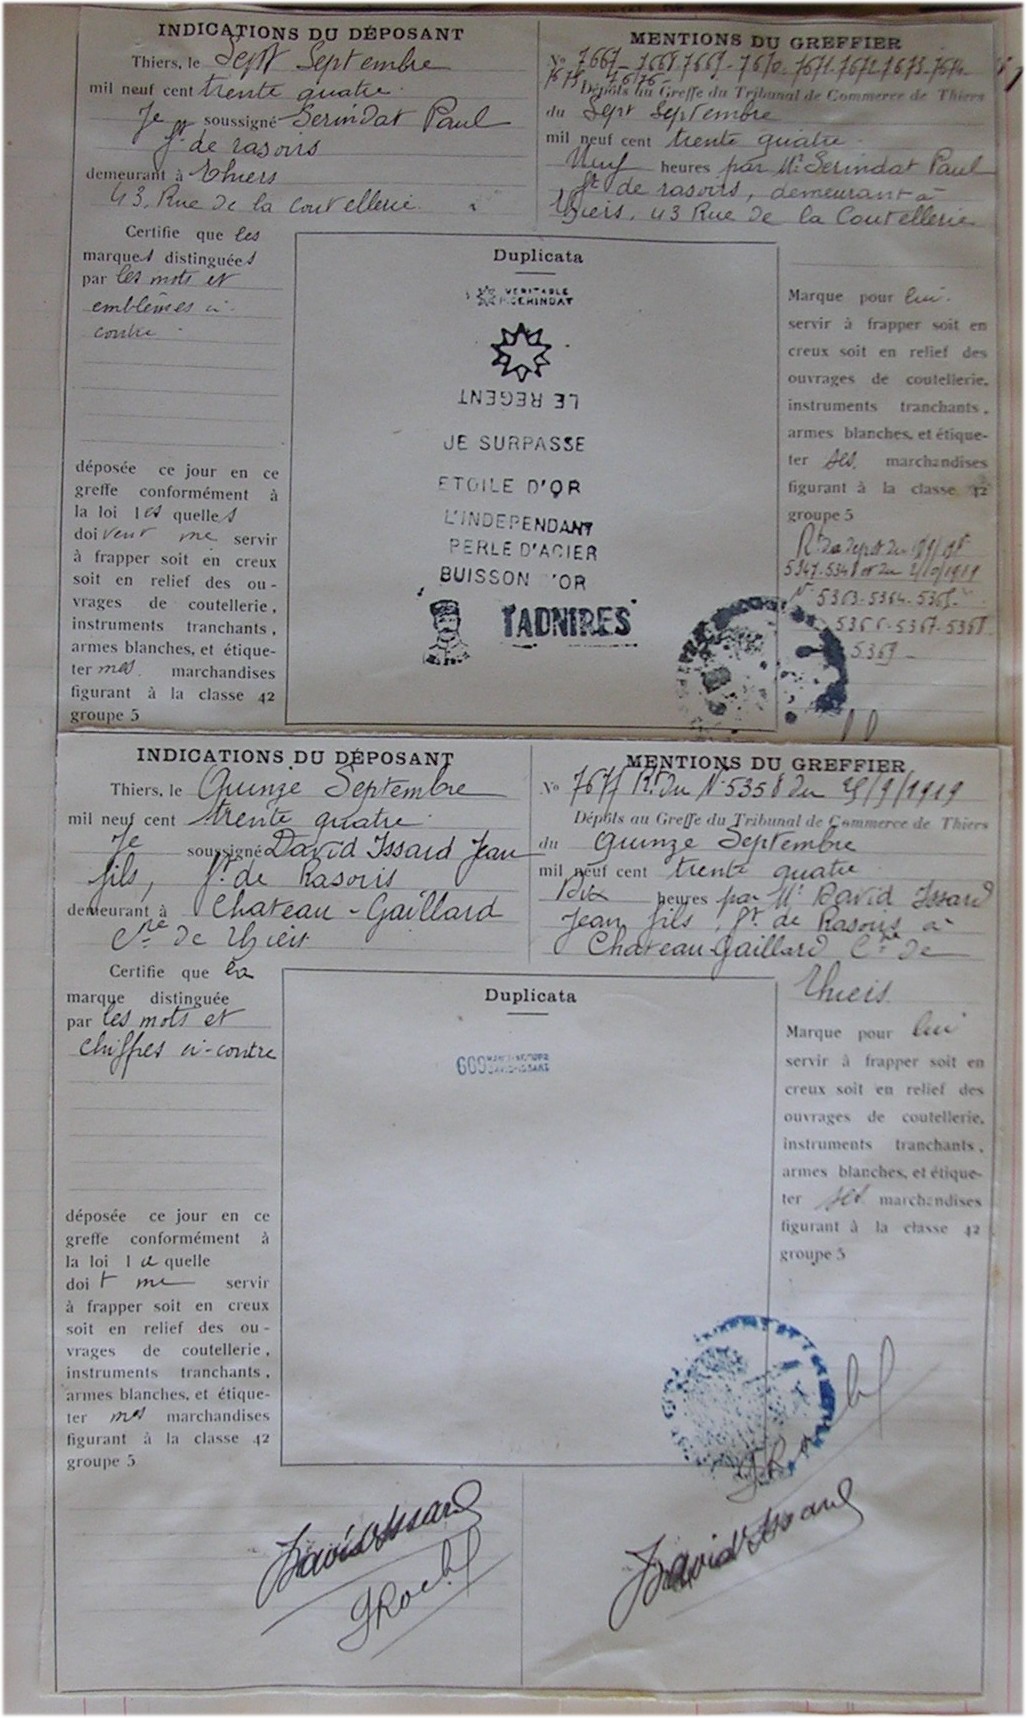 INDICATIONS DU DÉPOSANT
Thiers, le Sept Septembre
mil neuf cent trente quatre.
Je soussigné Serindat Paul
ft de rasoirs
demeurant à Thiers
43, Rue de la Coutellerie.
Certifie que les
marques distinguées
par les mots et
emblèmes ci-
contre.
déposée ce jour en ce
greffe conformément à
la loi les quelles
doivent me servir
à frapper soit en creux
soit en relief des ou-
vrages de coutellerie,
instruments tranchants,
armes blanches, et étique-
ter mes marchandises
figurant à la classe 42
groupe 5
MENTIONS DU GREFFIER
No 7667-7668-7669-7670-7671-7672-7673-7674-
7675-7676-
Dépôts au Greffe du Tribunal de Commerce de Thiers
du Sept Septembre
mil neuf cent trente quatre.
Neuf heures par Mr Serindat Paul
ft de rasoirs, demeurant à
Thiers, 43 Rue de la Coutellerie
Duplicata
VERITABLE
P. SERINDAT
LE REGENT
JE SURPASSE
ETOILE D'OR
L'INDEPENDANT
PERLE D'ACIER
BUISSON 'OR
TADNIRES
Marque pour lui
servir à frapper soit en
creux soit en relief des
ouvrages de coutellerie,
instruments tranchants,
armes blanches, et étique-
ter ses marchandises
figurant à la classe 42
groupe 5
5347-5348 et du 2/10/1919
No 5363-5364-5365-
5366-5367-5368
5369-
INDICATIONS DU DÉPOSANT
Thiers, le Quinze Septembre
mil neuf cent trente quatre.
Je soussigné David Issard Jean
fils, ft de Rasoirs
demeurant à Chateau-Gaillard
Cne de Thiers
Certifie que la
marque distinguée
par les mots et
chiffres ci-contre
déposée ce jour en ce
greffe conformément à
la loi la quelle
doit me servir
à frapper soit en creux
soit en relief des ou-
vrages de coutellerie,
instruments tranchants,
armes blanches, et étique-
ter mes marchandises
figurant à la classe 42
groupe 5
MENTIONS DU GREFFIER
No 7677 Rt du No 5358 du 25/9/1919
Dépôts au Greffe du Tribunal de Commerce de Thiers
du Quinze Septembre
mil neuf cent trente quatre
Dix heures par Mr David Issard
Jean fils, ft de Rasoirs à
Chateau Gaillard Cne de
Thiers.
Duplicata
600
DAVID-ISSART
Marque pour lui
servir à frapper soit en
creux soit en relief des
ouvrages de coutellerie,
instruments tranchants,
armes blanches, et étique-
ter ses marchandises
figurant à la classe 42
groupe 5
David Issard
David Issard